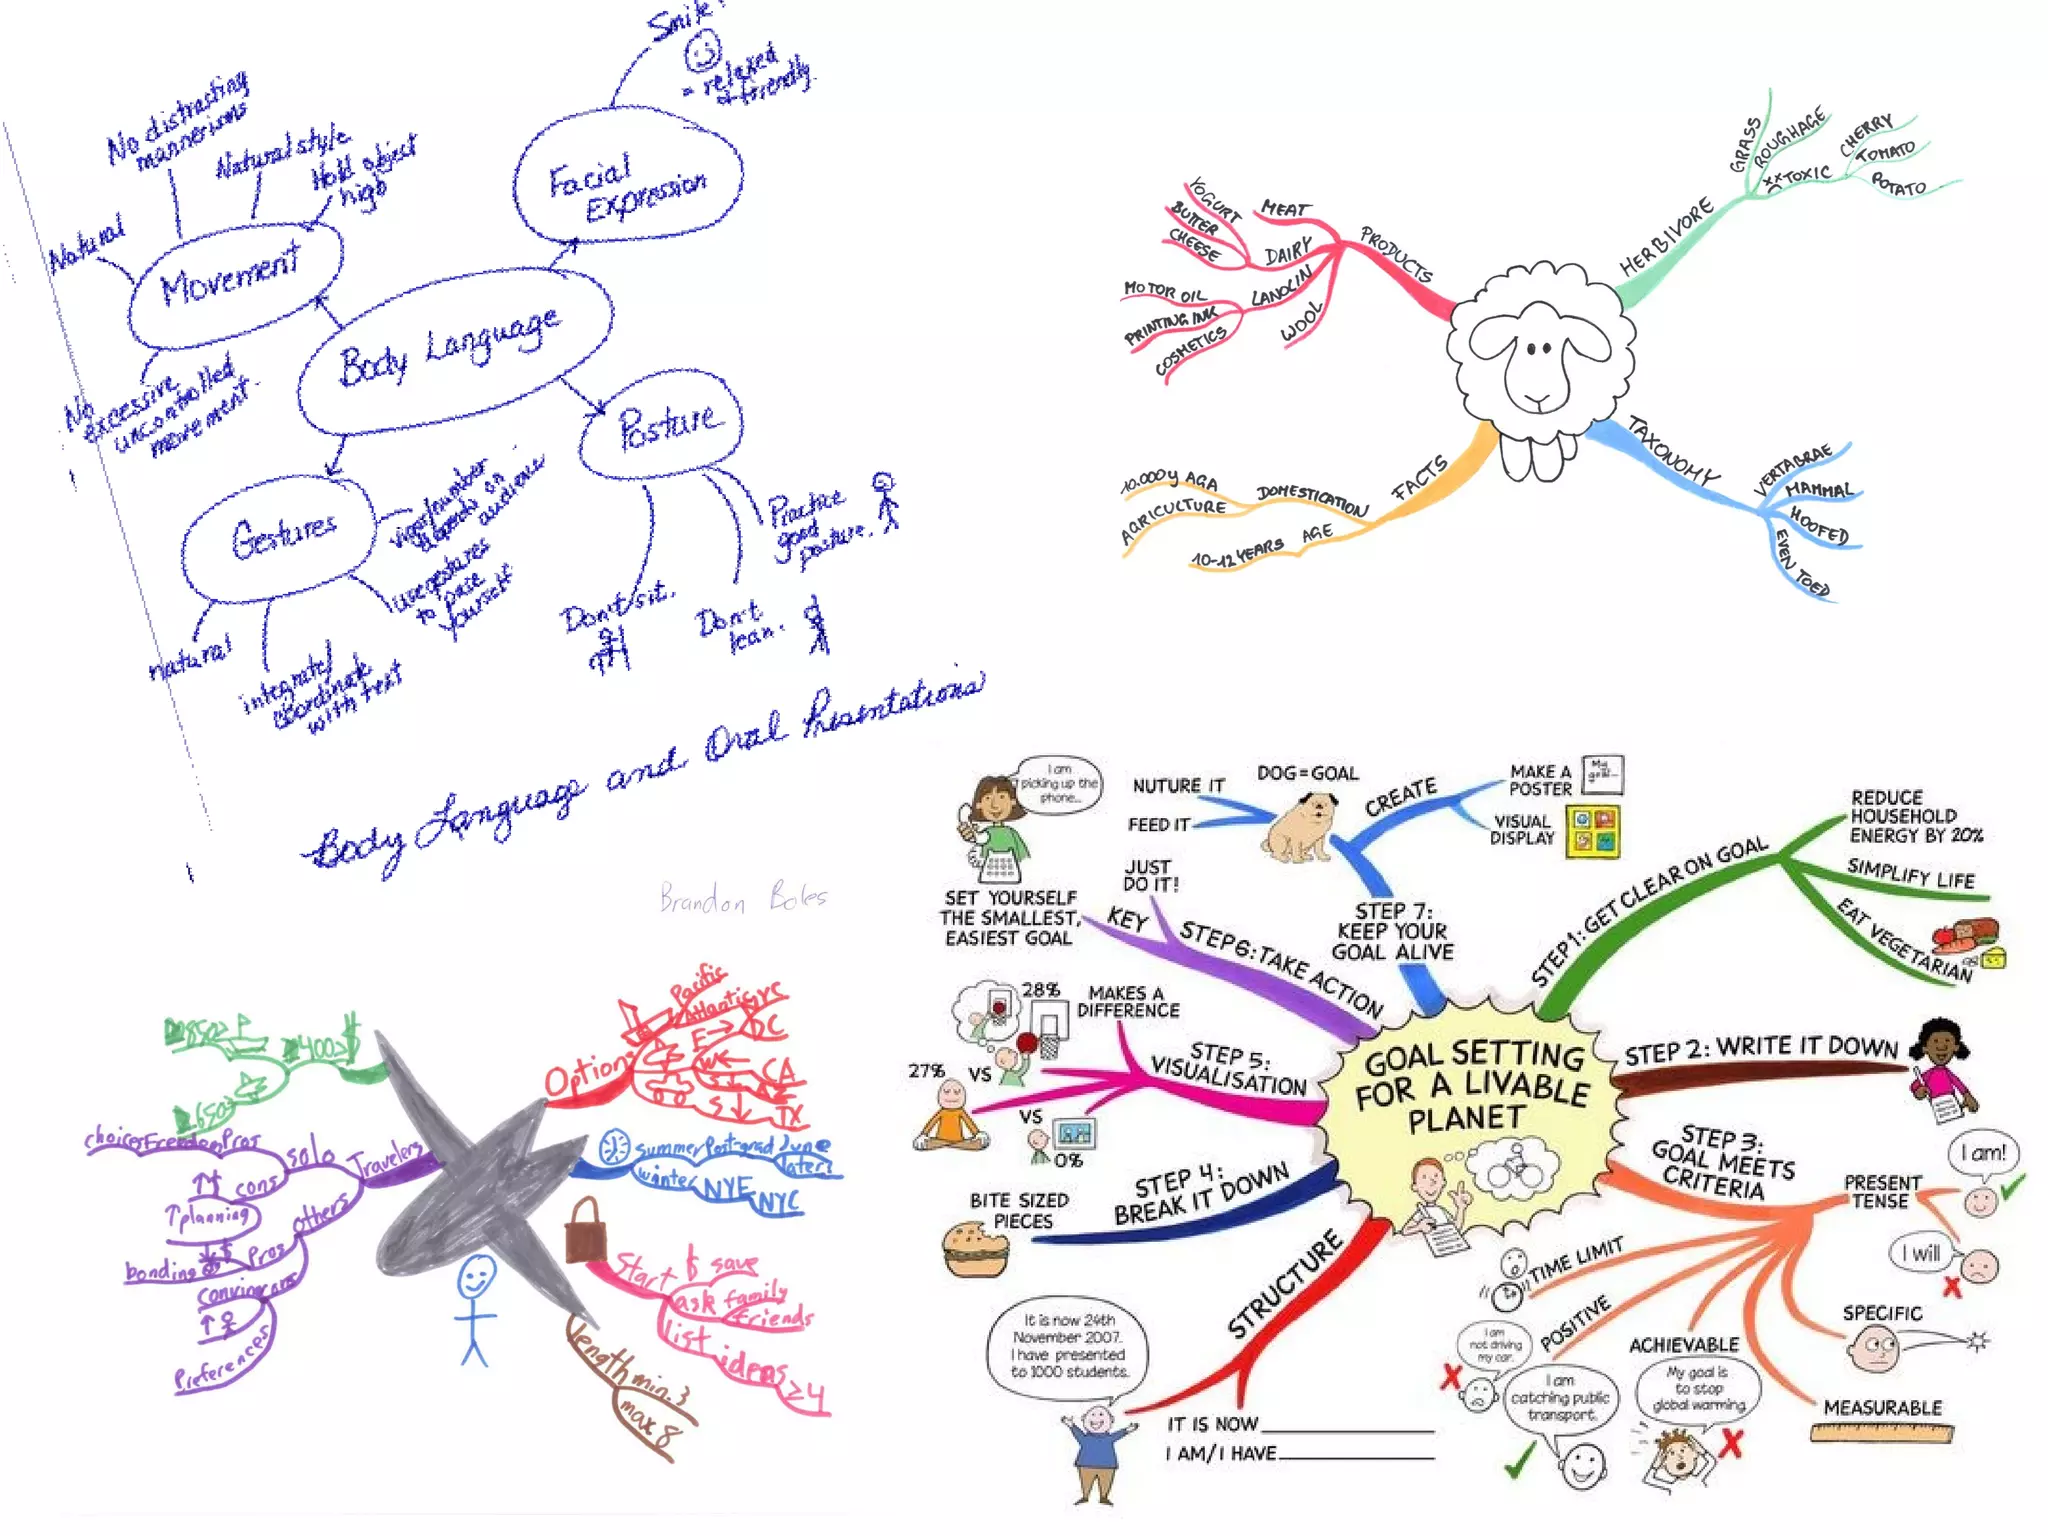 Smile!
= relaxed
& friendly.
Facial
Expression
No distracting
mannerisms
Natural style
Hold object
high
Natural
Movement
No
excessive
uncontrolled
movement.
Body Language
Posture
Practice
good
posture.
Don't sit.
Don't
lean.
Gestures
vigor/number
depends on
audience
use gestures
to pace
yourself
natural
integrate/
coordinate
with text
Body Language and Oral Presentations
GRASS
ROUGHAGE
TOXIC
CHERRY
TOMATO
POTATO
HERBIVORE
YOGURT
BUTTER
CHEESE
MEAT
DAIRY
PRODUCTS
MOTOR OIL
PRINTING INK
COSMETICS
LANOLIN
WOOL
TAXONOMY
VERTABRAE
MAMMAL
HOOFED
EVEN TOED
FACTS
10.000y AGA
AGRICULTURE
DOMESTICATION
10-12 YEARS AGE
Brandon Boles
400
$
650
Options
Pacific
Atlantic
NYC
E→ DC
W← CA
S↓ AZ
S↓ TX
Travelers
solo
choices Freedom Pros
cons
others
↑planning
Pros
bonding
cons
Preferences
summer Post-grad June
later?
winter NYE NYC
Start $ save
ask family
friends
list ideas ≥4
length min. 3
max 8
I am
picking up the
phone...
NUTURE IT
FEED IT
DOG=GOAL
CREATE
MAKE A
POSTER
My
goal...
VISUAL
DISPLAY
STEP 7:
KEEP YOUR
GOAL ALIVE
JUST
DO IT!
KEY
STEP 6: TAKE ACTION
SET YOURSELF
THE SMALLEST,
EASIEST GOAL
STEP 1: GET CLEAR ON GOAL
REDUCE
HOUSEHOLD
ENERGY BY 20%
SIMPLIFY LIFE
EAT VEGETARIAN
28%
MAKES A
DIFFERENCE
27%
VS
VS
0%
STEP 5:
VISUALISATION
GOAL SETTING
FOR A LIVABLE
PLANET
STEP 2: WRITE IT DOWN
STEP 3:
GOAL MEETS
CRITERIA
PRESENT
TENSE
I am!
I will
SPECIFIC
MEASURABLE
ACHIEVABLE
My goal is
to stop
global warming.
POSITIVE
I am
not driving
my car.
I am
catching public
transport.
TIME LIMIT
STEP 4:
BREAK IT DOWN
BITE SIZED
PIECES
STRUCTURE
It is now 24th
November 2007.
I have presented
to 1000 students.
IT IS NOW
I AM/I HAVE